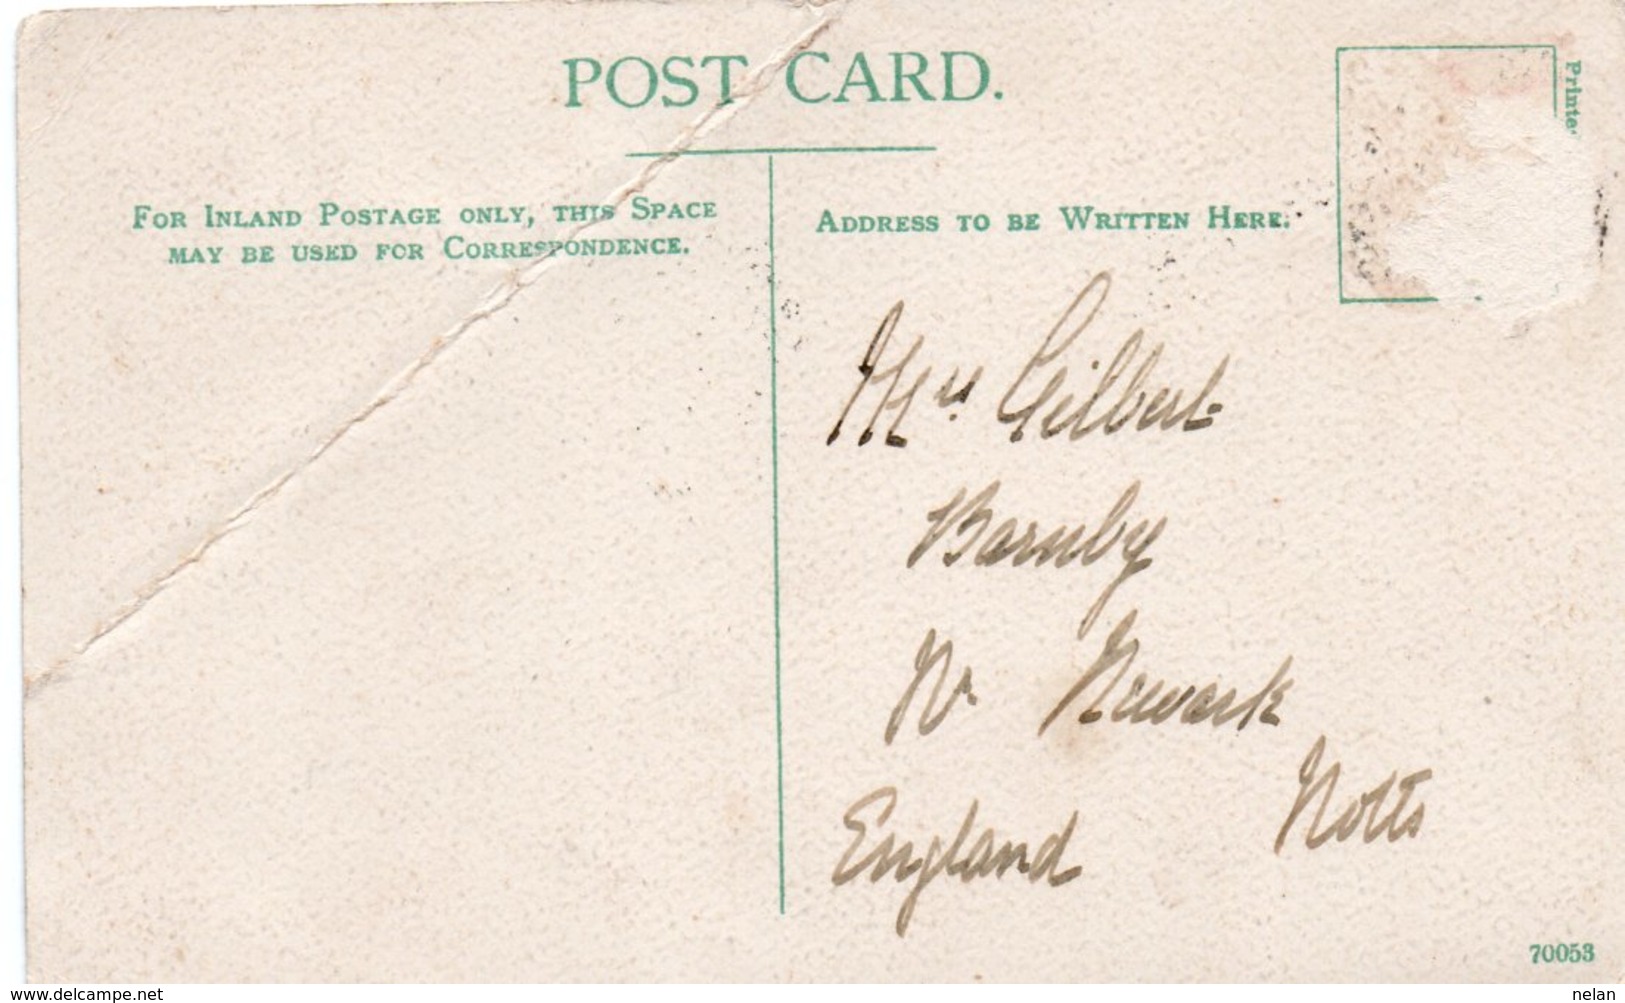 POST CARD.
FOR INLAND POSTAGE ONLY, THIS SPACE
MAY BE USED FOR CORRESPONDENCE.
ADDRESS TO BE WRITTEN HERE.
Printe
Mrs. Gilbert
Barnby
Nr Newark
Notts
England
70053
www.delcampe.net
nelan